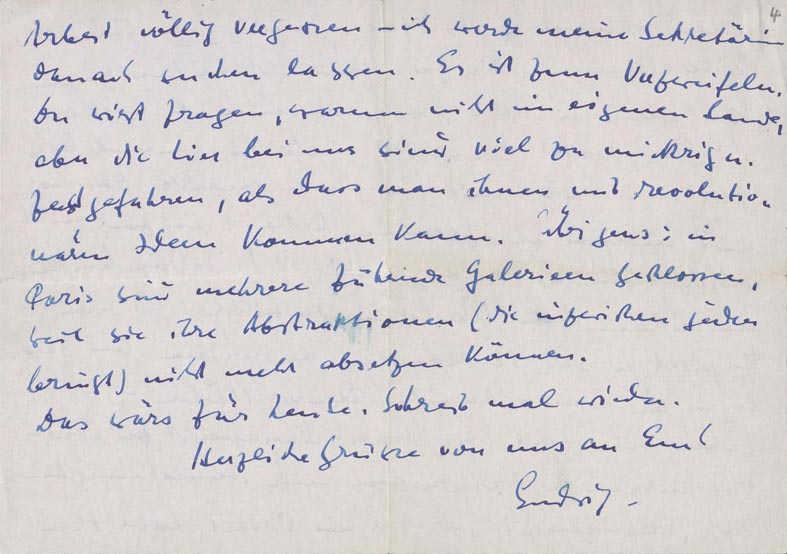 4
Arbeit völlig vergessen – ich werde meine Sekretärin
danach suchen lassen. Es ist zum Verzweifeln.
Du wirst fragen, warum nicht im eigenen Lande,
aber die hier bei uns sind viel zu mickrig u.
festgefahren, als dass man ihnen mit revolutio-
nären Ideen kommen kann. Übrigens: in
Paris sind mehrere führende Galerieen geschlossen,
weil sie ihre Abstraktionen (die inzwischen jeder
bringt) nicht mehr absetzen können.
Das wärs für heute. Schreib mal wieder.
Herzliche Grüsse von uns an Euch